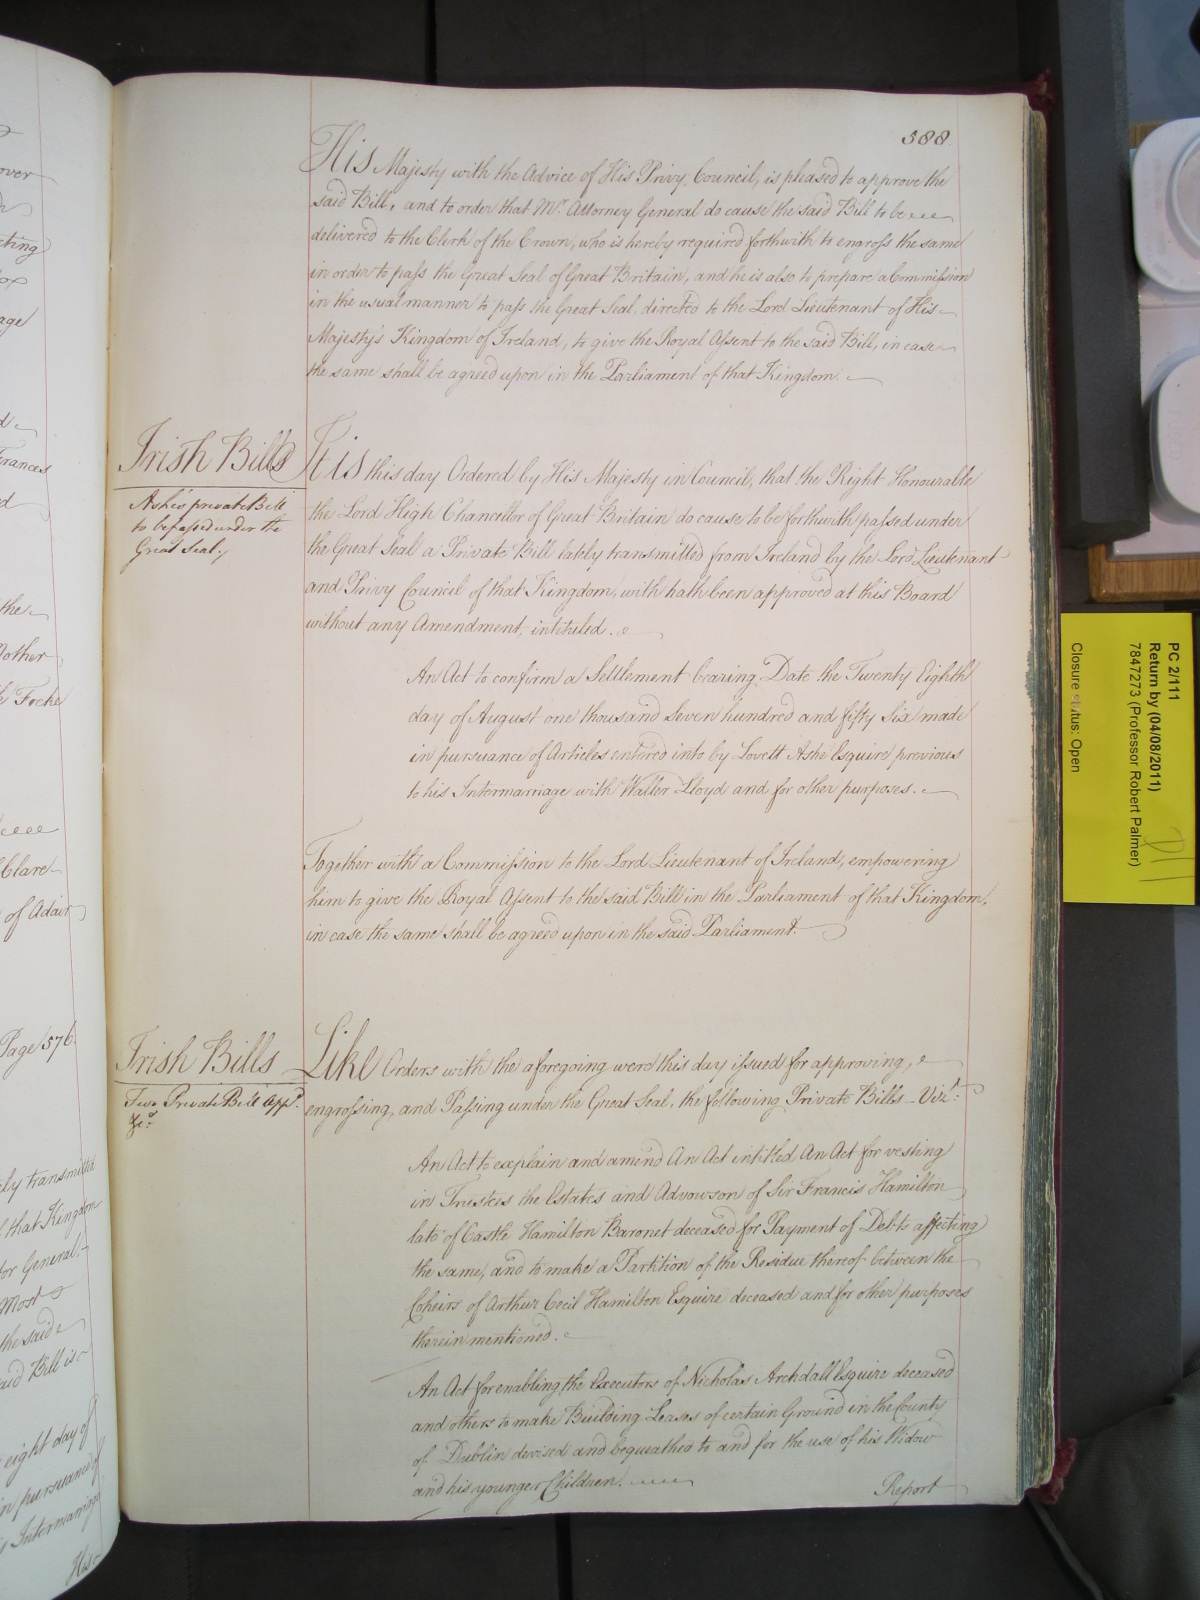 588
His Majesty with the Advice of His Privy Council, is pleased to approve the
said Bill, and to order that Mr. Attorney General do cause the said Bill to be
delivered to the Clerk of the Crown, who is hereby required forthwith to engross the same
in order to pass the Great Seal of Great Britain, and he is also to prepare a Commission
in the usual manner to pass the Great Seal directed to the Lord Lieutenant of His
Majesty's Kingdom of Ireland, to give the Royal Assent to the said Bill, in case
the same shall be agreed upon in the Parliament of that Kingdom.
Irish Bills
Ashe's private Bill
to be passed under the
Great Seal.
It is this day Ordered by His Majesty in Council, that the Right Honourable
the Lord High Chancellor of Great Britain do cause to be forthwith passed under
the Great Seal a Private Bill lately transmitted from Ireland by the Lord Lieutenant
and Privy Council of that Kingdom, with hath been approved at this Board
without any Amendment, intituled.
An Act to confirm a Settlement bearing Date the Twenty Eighth
day of August one thousand Seven hundred and fifty Six made
in pursuance of Articles entered into by Lovett Ashe Esquire previous
to his Intermarriage with Waller Lloyd and for other purposes.
Together with a Commission to the Lord Lieutenant of Ireland, empowering
him to give the Royal Assent to the said Bill in the Parliament of that Kingdom,
in case the same shall be agreed upon in the said Parliament.
Irish Bills
Two Private Bills App.d
&c.
Like Orders with the aforegoing were this day issued for approving,
engrossing, and Passing under the Great Seal, the following Private Bills Vizt.
An Act to explain and amend An Act intitled An Act for vesting
in Trustees the Estates and Advowson of Sir Francis Hamilton
late of Castle Hamilton Baronet deceased for Payment of Debts affecting
the same, and to make a Partition of the Residue thereof between the
Coheirs of Arthur Cecil Hamilton Esquire deceased and for other purposes
therein mentioned.
An Act for enabling the Executors of Nicholas Archdall Esquire deceased
and others to make Building Leases of certain Ground in the County
of Dublin devised and bequeathed to and for the use of his Widow
and his younger Children.
Report
over
cting
age
Frances
the
Mother
Clare
of Adair
Page 576.
transmitted
that Kingdom
or General
Most
the said
said Bill is
eight day of
in pursuance of
Intermarriage
His
PC 2/111
Return by (04/08/2011)
7847273 (Professor Robert Palmer)
Closure status: Open